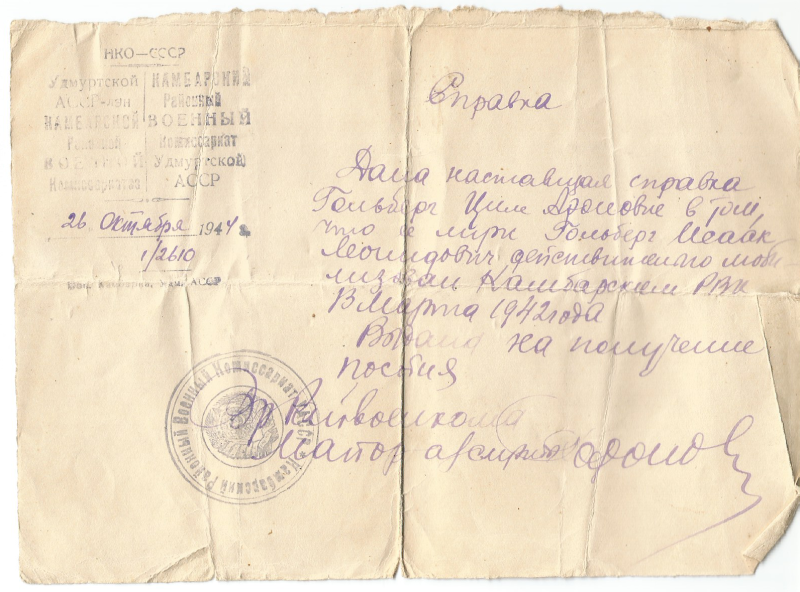 НКО—СССР
Удмуртской
АССР
КАМБАРСКОЙ
Районной
ВОЕННЫЙ
Комиссариата
КАМБАРСКИЙ
Районный
ВОЕННЫЙ
Комиссариат
Удмуртской
АССР
26 Октября 1944 г.
1/2610
АССР
Справка
Дана настоящая справка
Гольберг Циле в том
что её муж Гольберг Исаак
Леонидович действительно моби
лизован Камбарским РВК
13 Марта 1942 года
Выдана на получение
пособия
Райвоенкома
Майор
Камбарский Районный Военный Комиссариат